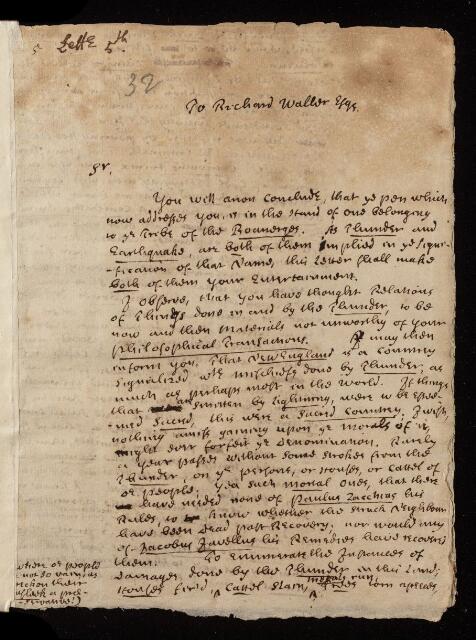 5 Lettr 5th.
32
To Richard Waller Esqr.
Sr.
You will anon conclude, that ye pen which
now addresses you, is in the Hand of one belonging
to ye Tribe of the Boanerges. As Thunder and
Earthquake, are both of them implied in ye Signi-
-fication of that Name, this Letter shall make
both of them your Entertainment.
I observe, that you have thought Relations
of Things done in and by the Thunder, to be
now and then Materials not unworthy of your
Philosophical Transactions. I may then
inform you, That New England is a Countrey
signalized with Mischiefs done by Thunder, as
much as perhaps most in the World. If things
that are smitten by Lightning, were to be estee-
-med Sacred, this were a Sacred Countrey. I wish,
nothing amiss gaining upon ye morals of it,
might ever forfeit ye Denomination. Rarely
a year passes without some strokes from the
Thunder, on ye persons, or Houses, or Cattel of
or people; yea such mortal ones, that there
have needed none of Paulus Zacchias his
Rules, to know whether the struck Neighbour
have been Dead past Recovery, nor would any
of Jacobus Javellus his Remedies have recovered
them. To Enumerate the Instances of
Damages, done by the Thunder in this Land,
Houses fired, Cattel slain, Trees torn a pieces,
when or people
not so
their
seek a